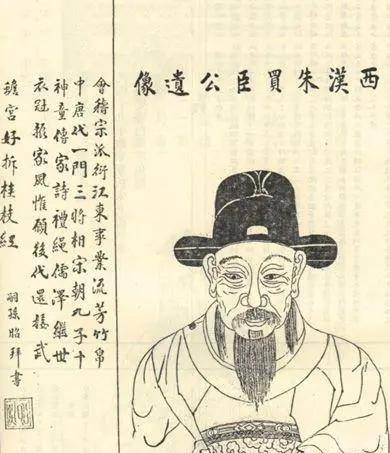 西漢朱買臣公遺像
會稽宗派衍江東事業流芳竹帛
中唐代一門三將相宋朝九子十
神童傳家詩禮繩儒澤繼世
衣冠家風惟願後代還接武
蟾宮好折桂枝紅
嗣孫昭拜書